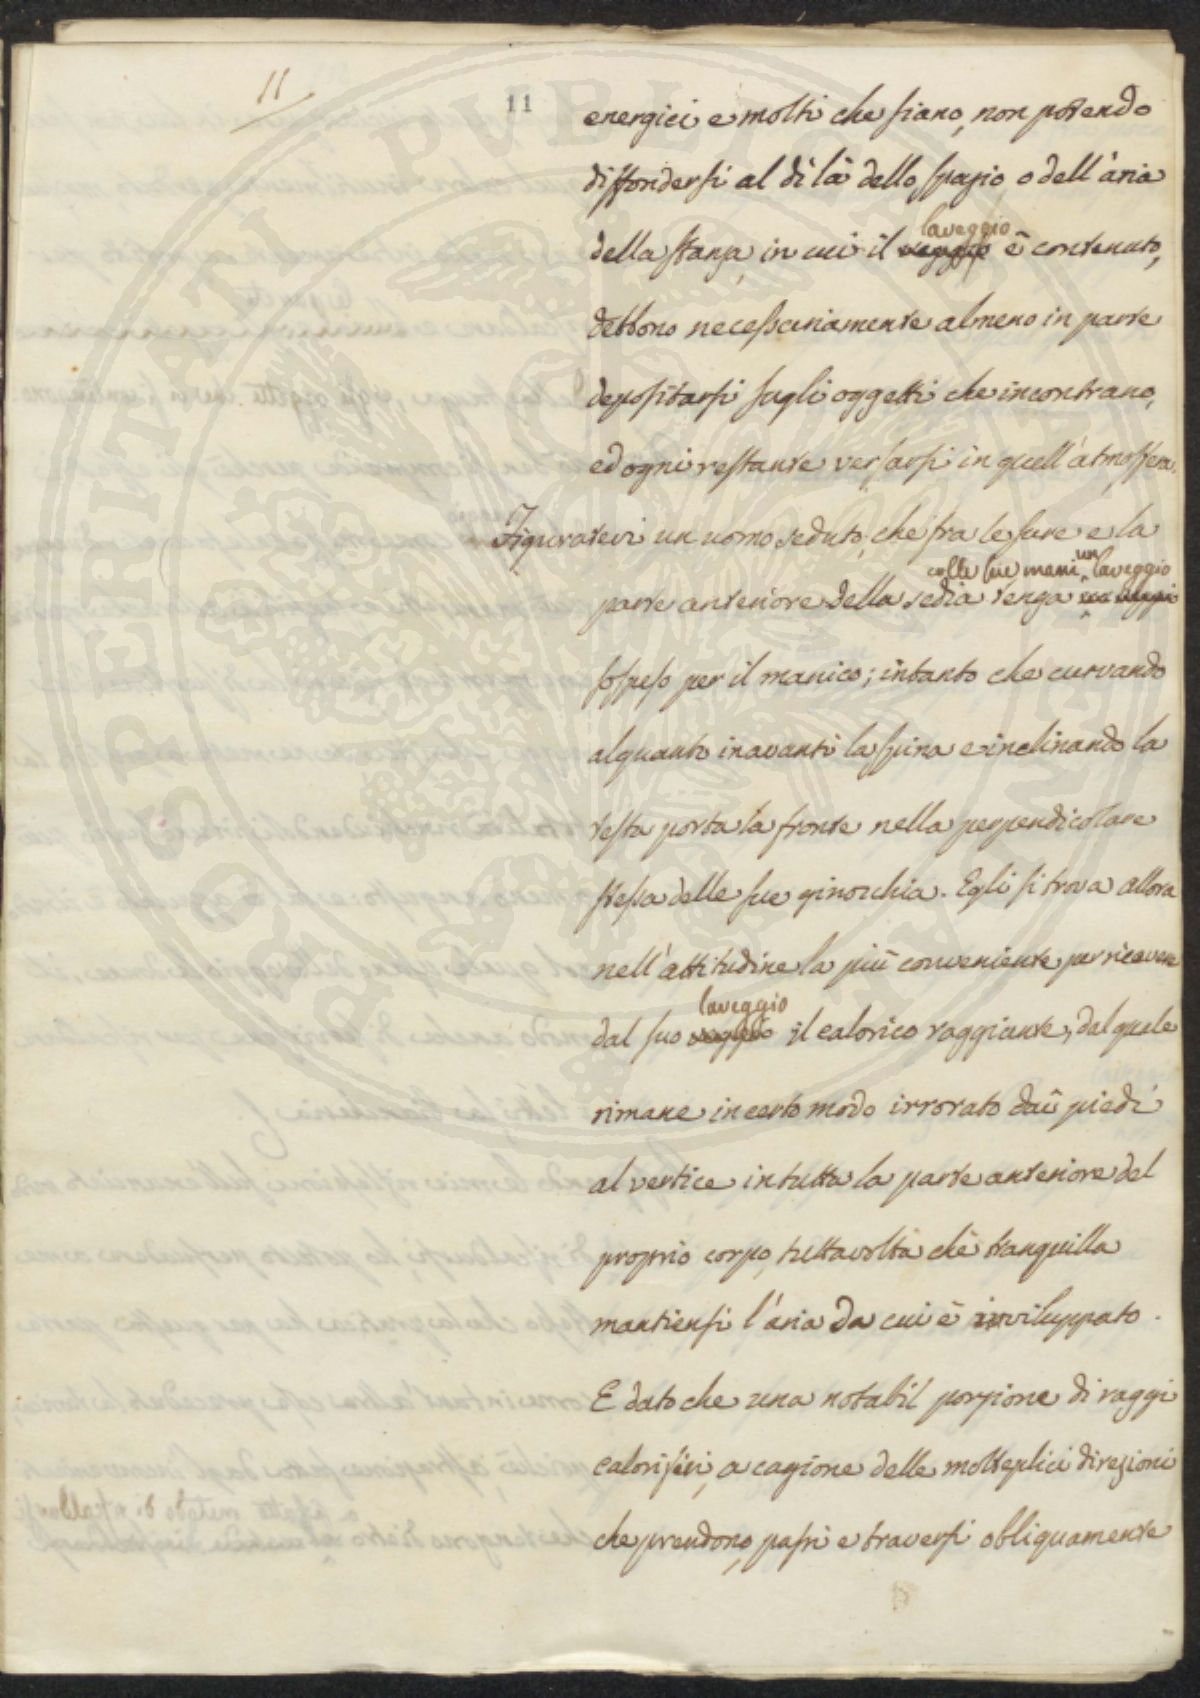 11
11
energici e molti che siano, non potendo
diffondersi al di là dello spazio o dell'aria
della stanza, in cui il veggio laveggio è contenuto,
debbono necessariamente almeno in parte
depositarsi sugli oggetti che incontrano,
ed ogni restante versarsi in quell'atmosfera.
Figuratevi un uomo seduto, che fra le sure e la
colle sue mani un laveggio
parte anteriore della sedia tenga
sospeso per il manico; intanto che curvando
alquanto inavanti la spina e inclinando la
testa porta la fronte nella perpendicolare
stessa delle sue ginocchia. Egli si trova allora
nell'attitudine la più conveniente per ricevere
laveggio
dal suo veggio il calorico raggiante, dal quale
rimane in certo modo irrorato daù piedi
al vertice in tutta la parte anteriore del
proprio corpo, tuttavolta che tranquilla
mantiensi l'aria da cui è inviluppato.
E dato che una notabil porzione di raggi
calorifici, a cagione delle molteplici direzioni
che prendono, passi e traversi obliquamente
PROSPERITATI PVBLICAE AVGENDAE